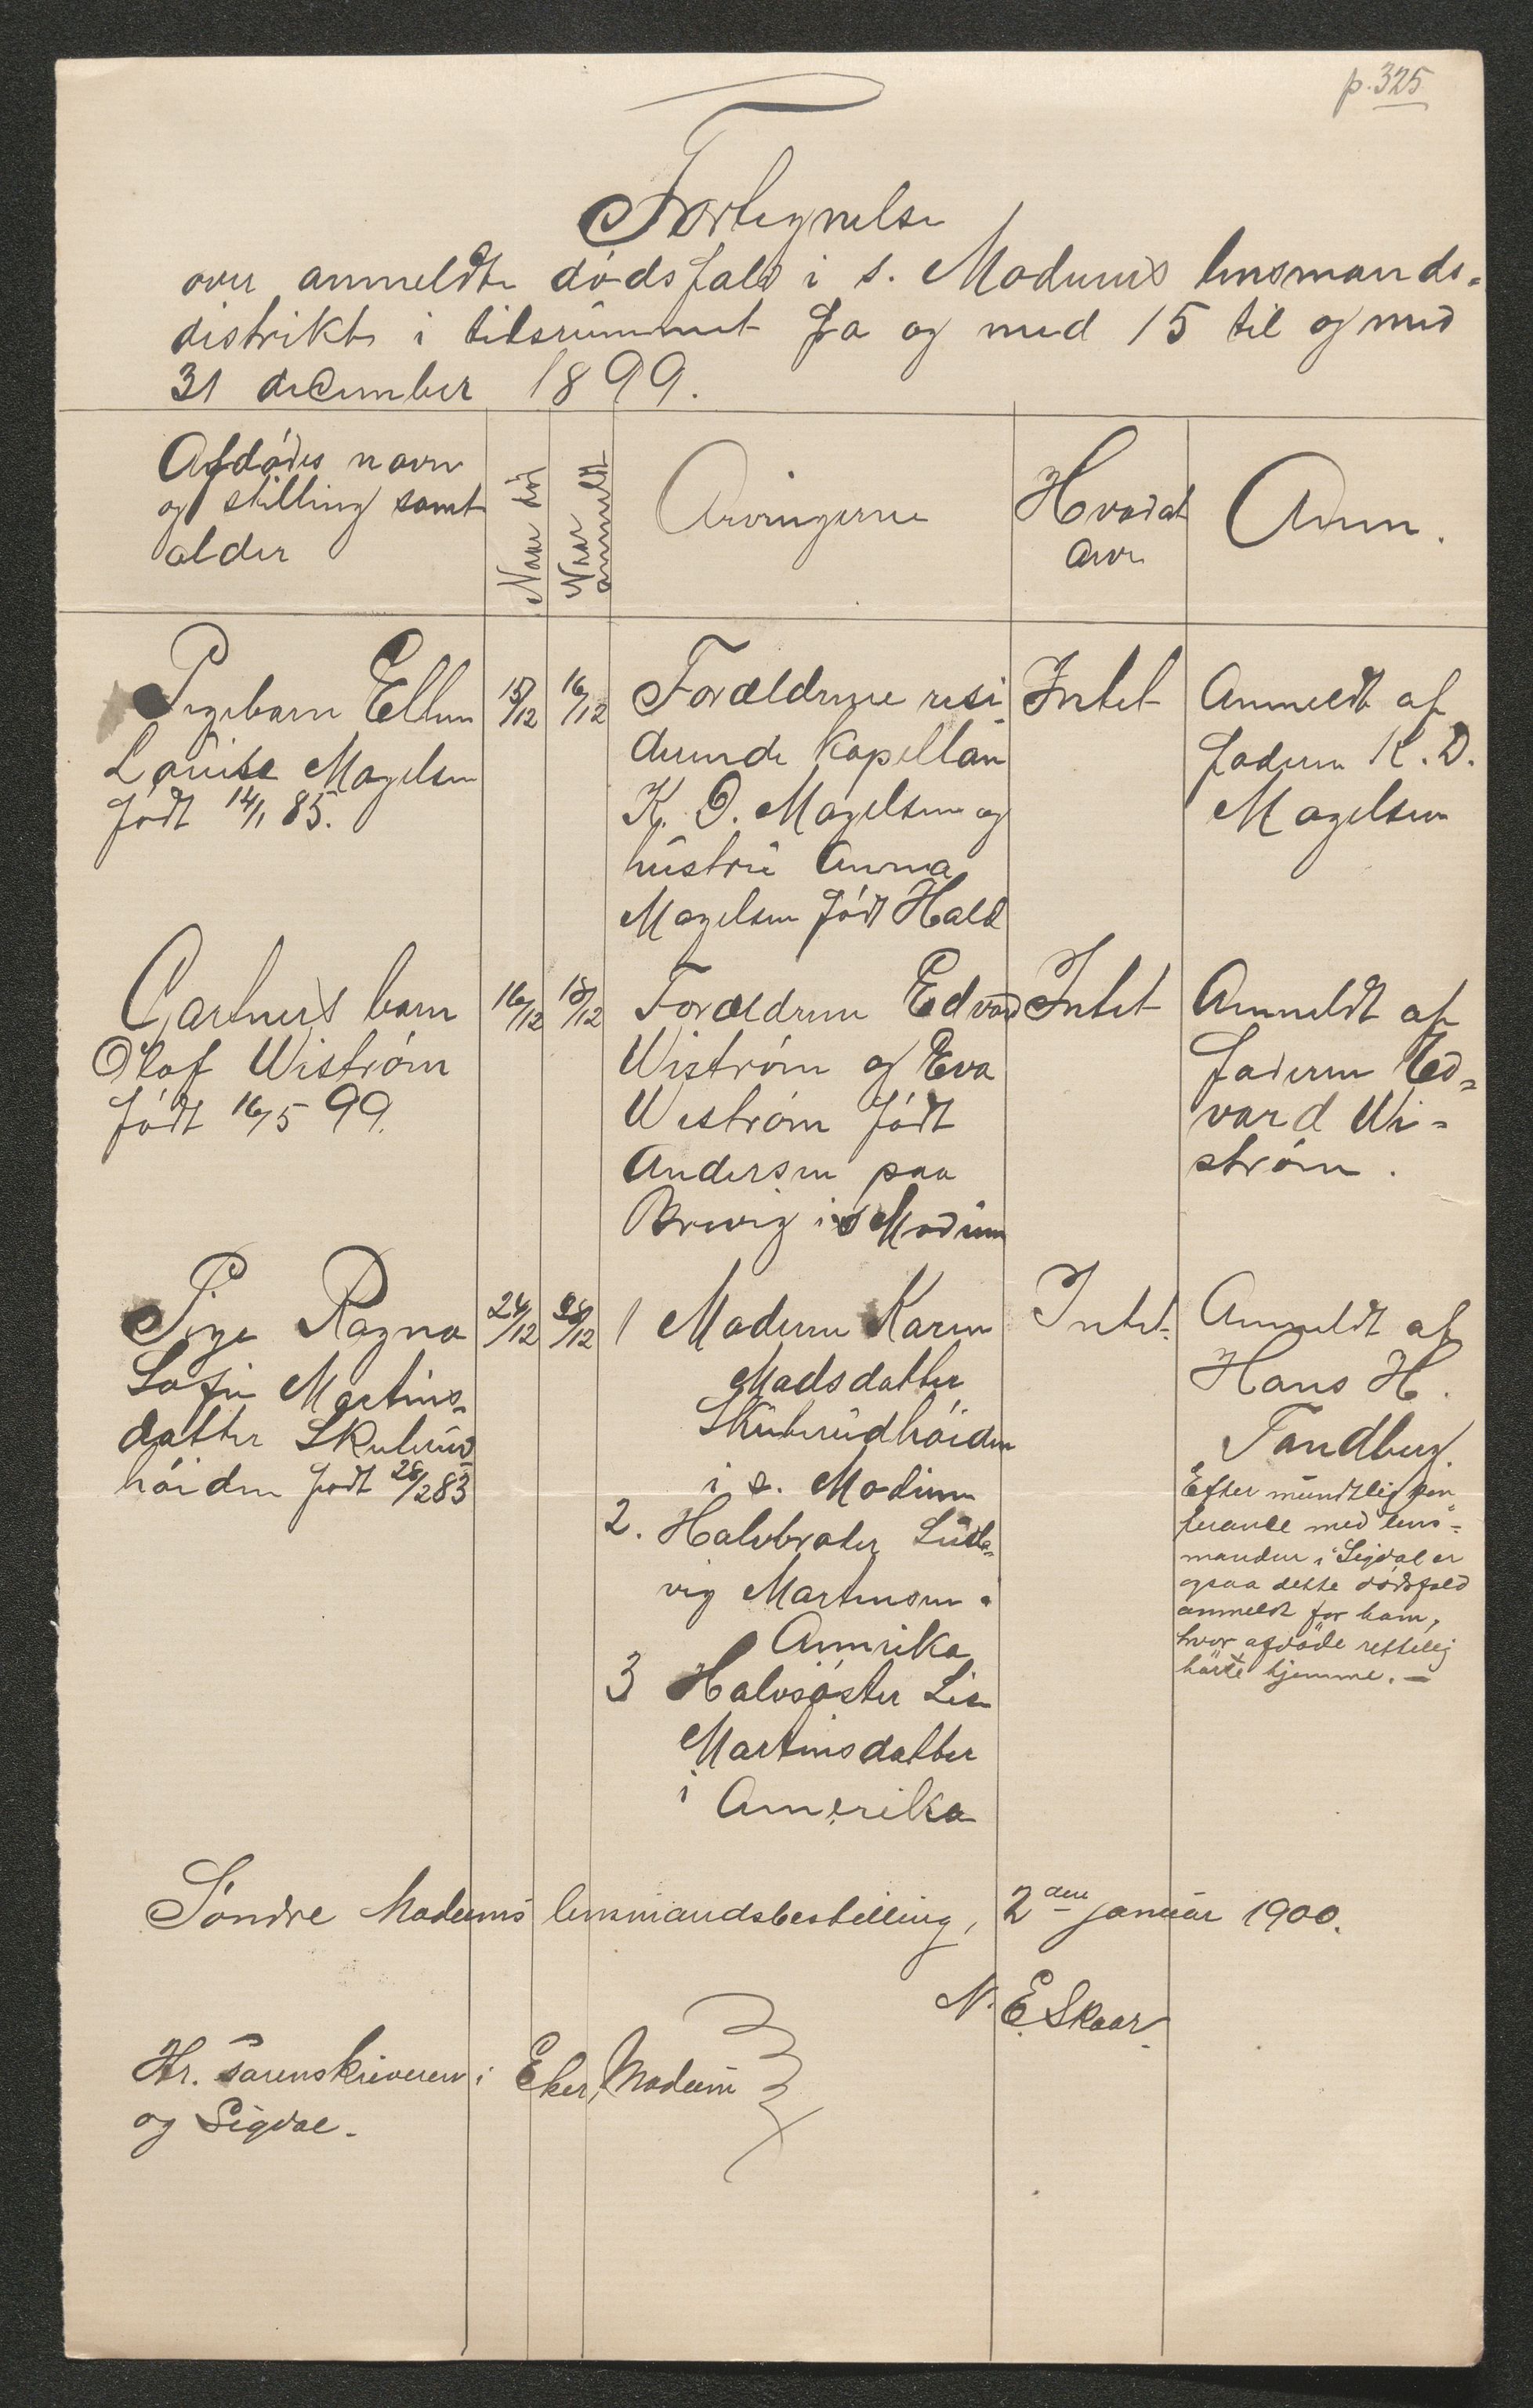 p. 325
Fortegnelse
over anmeldte dødsfald i s. Modums lensmands-
distrikt i tidsrummet fra og med 15 til og med
31 december 1899.
Afdødes navn
og stilling samt
alder
Naar død
Naar
anmeldt
Arvingerne
Hvad at
arve
Anm.
Pigebarn Ellen
Louise Magelsen
født 14/1 85.
15/12
16/12
Forældrene resi
derende kapellan
K. D. Magelsen og
hustru Anna
Magelsen født Hald
Intet
Anmeldt af
faderen K. D.
Magelsen
Gartners barn
Olaf Wistrøm
født 16/5 99.
16/12
18/12
Forældrene Edvard
Wistrøm og Eva
Wistrøm født
Andersen paa
Brevig i s Modum
Intet
Anmeldt af
faderen Ed-
vard Wi-
strøm.
Pige Ragna
Sofie Martins-
datter Skuterud-
høiden født 28/2 83
24/12
28/12
1 Moderen Karen
Madsdatter
Skuterudhøiden
i s. Modum
2. Halvbroder Lud-
vig Martinsen i
Amerika
3 Halvsøster Lise
Martinsdatter
i Amerika
Intet.
Anmeldt af
Hans H.
Tandberg.
Efter mundtlig kon
ferance med lens-
manden i Sigdal er
ogsaa dette dødsfald
anmeldt for ham,
hvor afdøde rettelig
hørte hjemme. -
Søndre Modums lensmandsbestilling, 2den januar 1900.
N. E. Skaar.
Hr. sorenskriveren i Eker, Modum
og Sigdal.